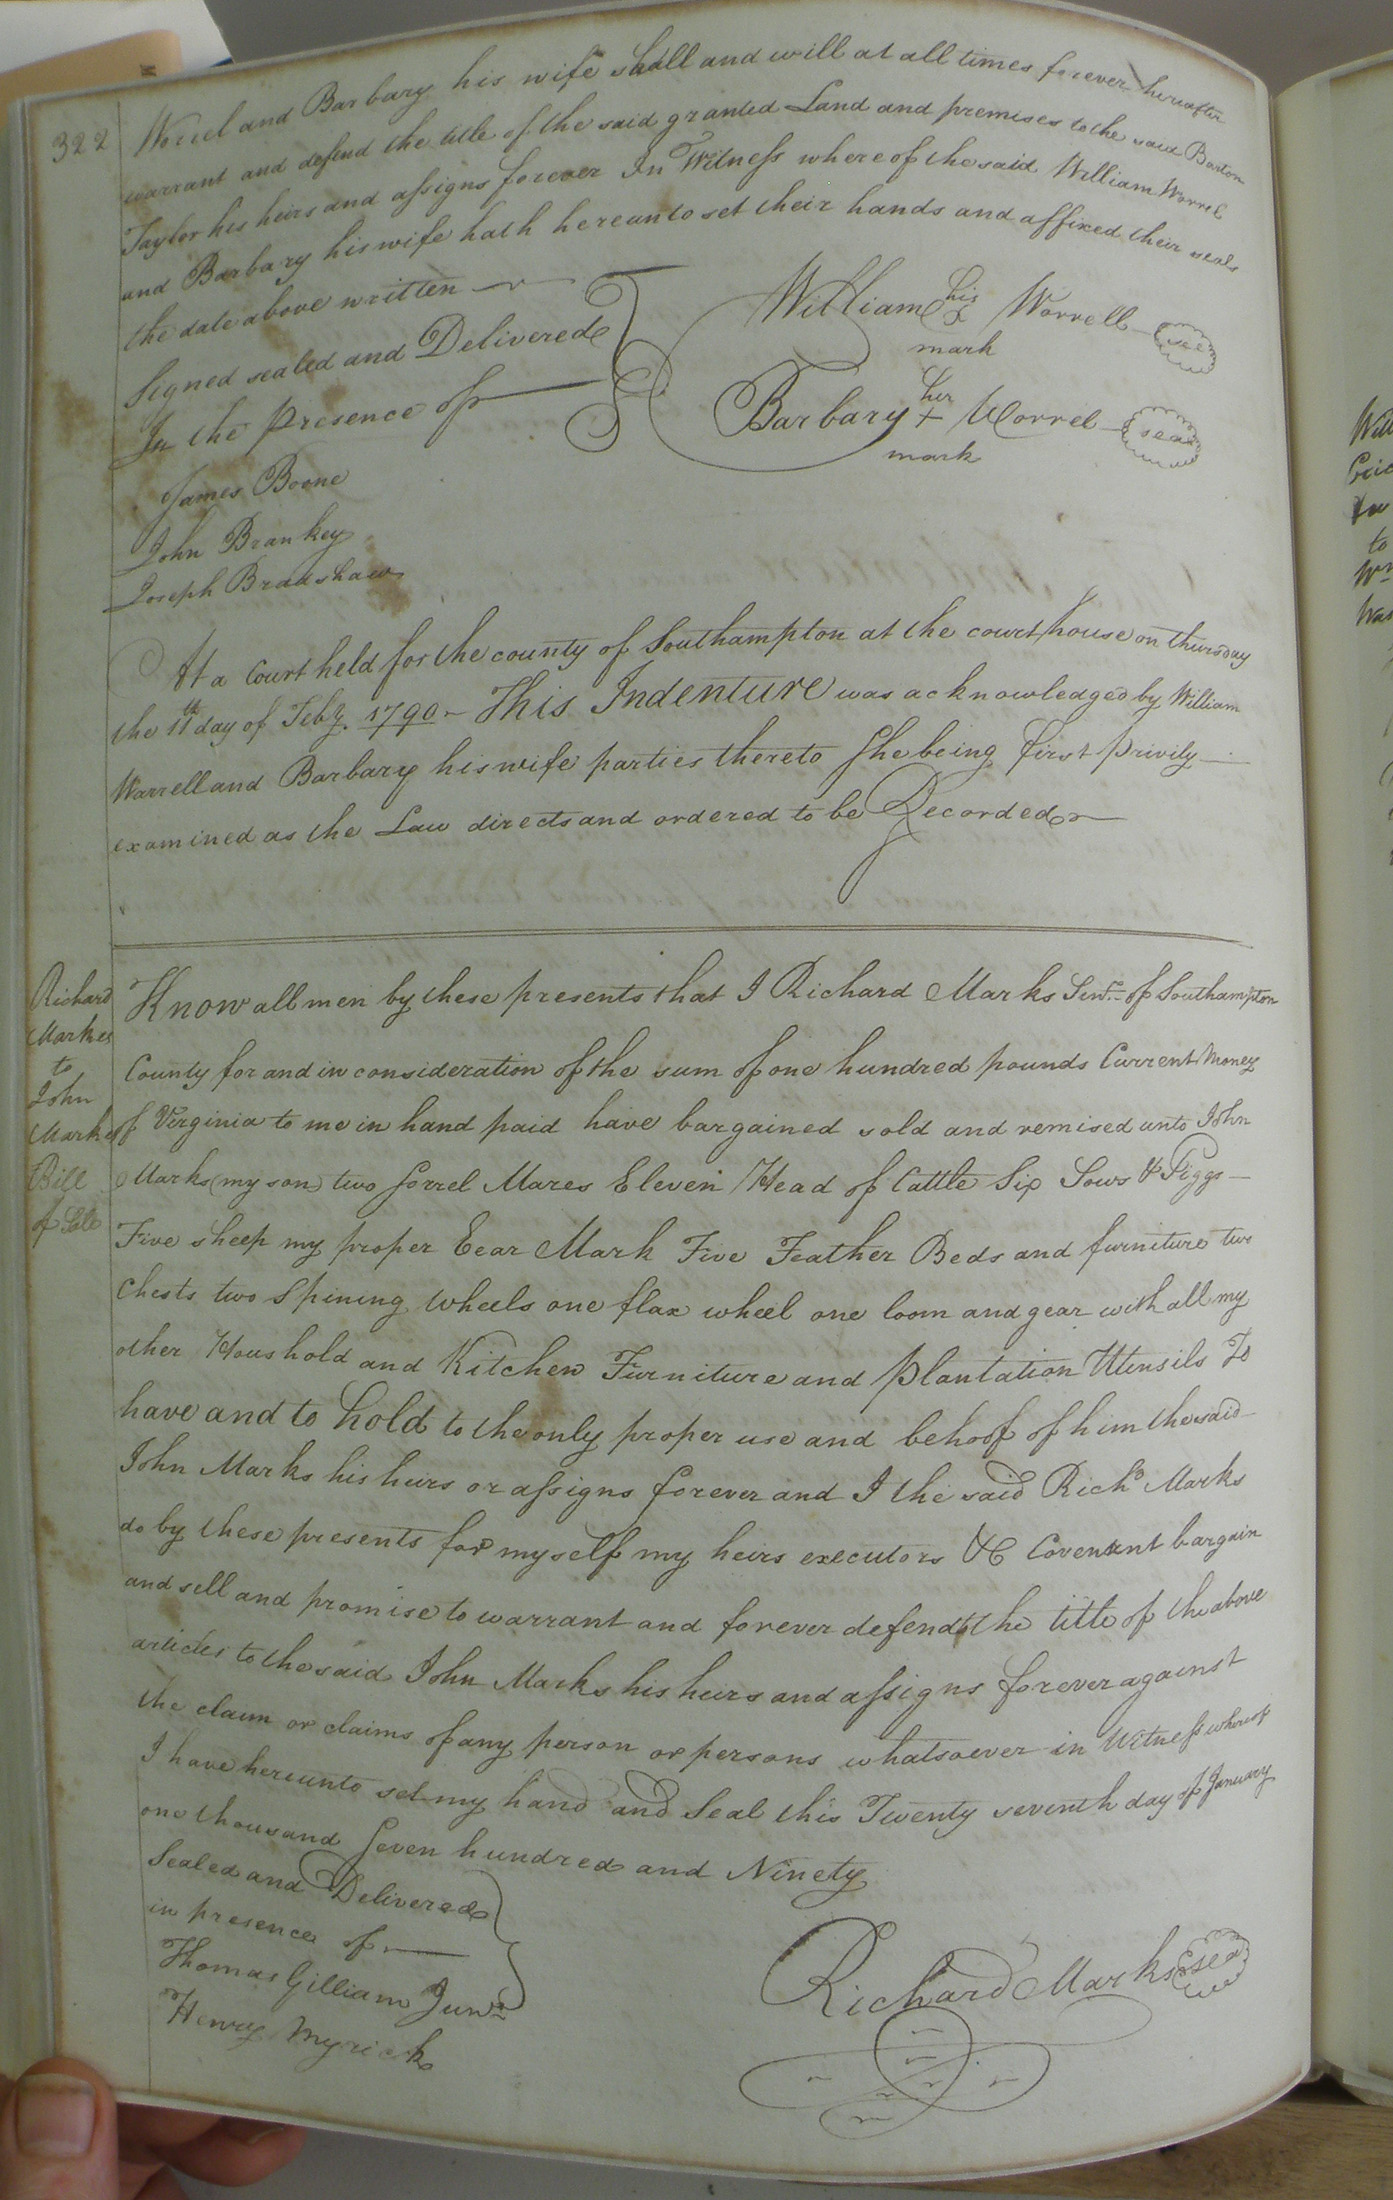 322
Worrel and Barbary his wife shall and will at all times forever hereafter
warrant and defend the title of the said granted Land and premises to the said Barton
Taylor his heirs and assigns forever In Witness whereof the said William Worrel
and Barbary his wife hath hereunto set their hands and affixed their seals
the date above written
Signed sealed and Delivered
In the presence of
William his x mark Worrell seal
Barbary her + mark Worrel seal
James Boone
John Brankey
Joseph Bradshaw
At a Court held for the county of Southampton at the court house on thursday
the 11th day of Feby. 1790 - This Indenture was acknowledged by William
Warrell and Barbary his wife parties thereto She being first privily
examined as the Law directs and ordered to be Recorded
Richard
Markes
to
John
Marks
Bill
of Sale
Know all men by these presents that I Richard Marks Senr. of Southampton
County for and in consideration of the sum of one hundred pounds Current Money
of Virginia to me in hand paid have bargained sold and remised unto John
Marks (my son) two Sorrel Mares Eleven Head of Cattle Six Sows & Piggs
Five sheep my proper Eear Mark Five Feather Beds and furniture two
Chests two Spining Wheels one flax wheel one loom and gear with all my
other Houshold and Kitchen Furniture and plantation Utensils To
have and to hold to the only proper use and behoof of him the said
John Marks his heirs or assigns forever and I the said Richd Marks
do by these presents for myself my heirs executors &C Covenant bargain
and sell and promise to warrant and forever defend the title of the above
articles to the said John Marks his heirs and assigns forever against
the claim or claims of any person or persons whatsoever in Witness whereof
I have hereunto set my hand and Seal this Twenty seventh day of January
one thousand Seven hundred and Ninety
Sealed and Delivered
in presence of
Thomas Gilliam Junr.
Henry Myrick
Richard Marks seal